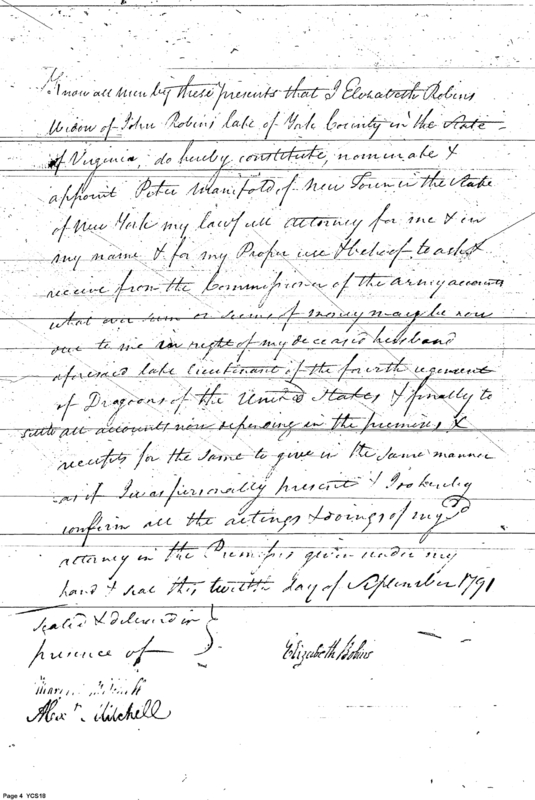 Know all men by these presents that I Elizabeth Robins
Widow of John Robins late of York County in the State
of Virginia, do hereby constitute, nominate &
appoint Peter Manifold of New Town in the State
of New York my lawfull attorney for me & in
my name & for my Proper use & behoof to ask &
receive from the Commissioner of the army accounts
what ever sum or sums of money may be now
due to me in right of my deceased husband
aforesaid late Lieutenant of the fourth regement
of Dragoons of the United States & finally to
settle all accounts now depending in the premises &
receipts for the same to give in the same manner
as if I was personally present & I do hereby
confirm all the actings & doings of my sd
attorney in the Premises given under my
hand & seal this twelth day of September 1791
sealed & delivered in
presence of
Elizabeth Robins
Alexr. Mitchell
Page 4 YCS18